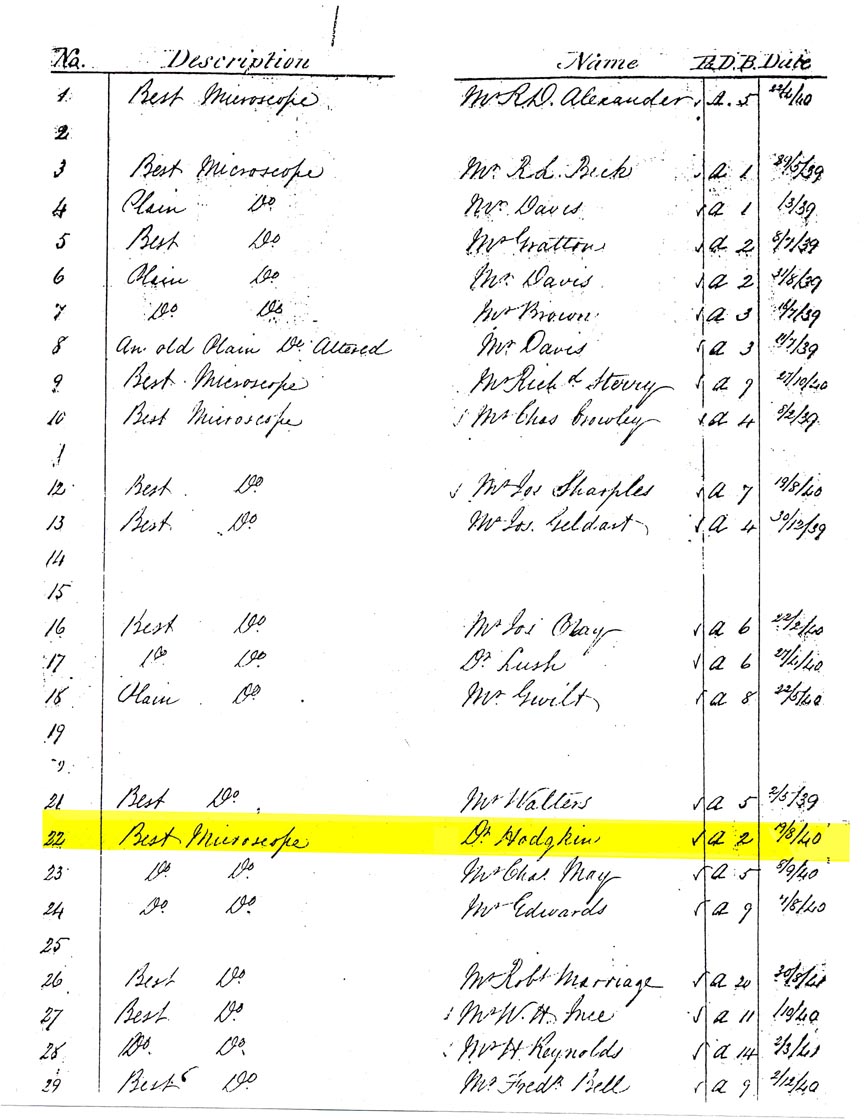 No. Description Name B.D.B. Date
1 Best Microscope Mr R.D. Alexander A. 5
2
3 Best Microscope Mr R.L. Beck a 1 29/5/39
4 Plain Do Mr Davis a 1 /3/39
5 Best Do Mr Gratton a 2 8/7/39
6 Plain Do Mr Davis a 2 31/8/39
7 Do Do Mr Brown a 3 /7/39
8 An old Plain Do Altered Mr Davis a 3 /7/39
9 Best Microscope Mr Richd Sterry a 9 27/10/40
10 Best Microscope Mr Chas Crowley a 4 8/2/39
1
12 Best Do Mr Jos Sharples a 7 19/8/40
13 Best Do Mr Jos. Geldart a 4 30/12/39
14
15
16 Best Do Mr Jos a 6 22/2/40
17 Do Do Dr Lush a 6 27/4/40
18 Plain Do Mr Gwilt a 8 22/5/40
19
21 Best Do Mr Walters a 5 2/5/39
22 Best Microscope Dr Hodgkin a 2 19/8/40
23 Do Do Mr Chas. May a 5 8/9/40
24 Do Do Mr Edwards a 9 /8/40
25
26 Best Do Mr Robt Marriage a 20 30/8/41
27 Best Do Mr W.H. Ince a 11 /10/40
28 Do Do Mr H Reynolds a 14 2/3/41
29 Best Do Mr Fredk Bell a 9 2/12/40